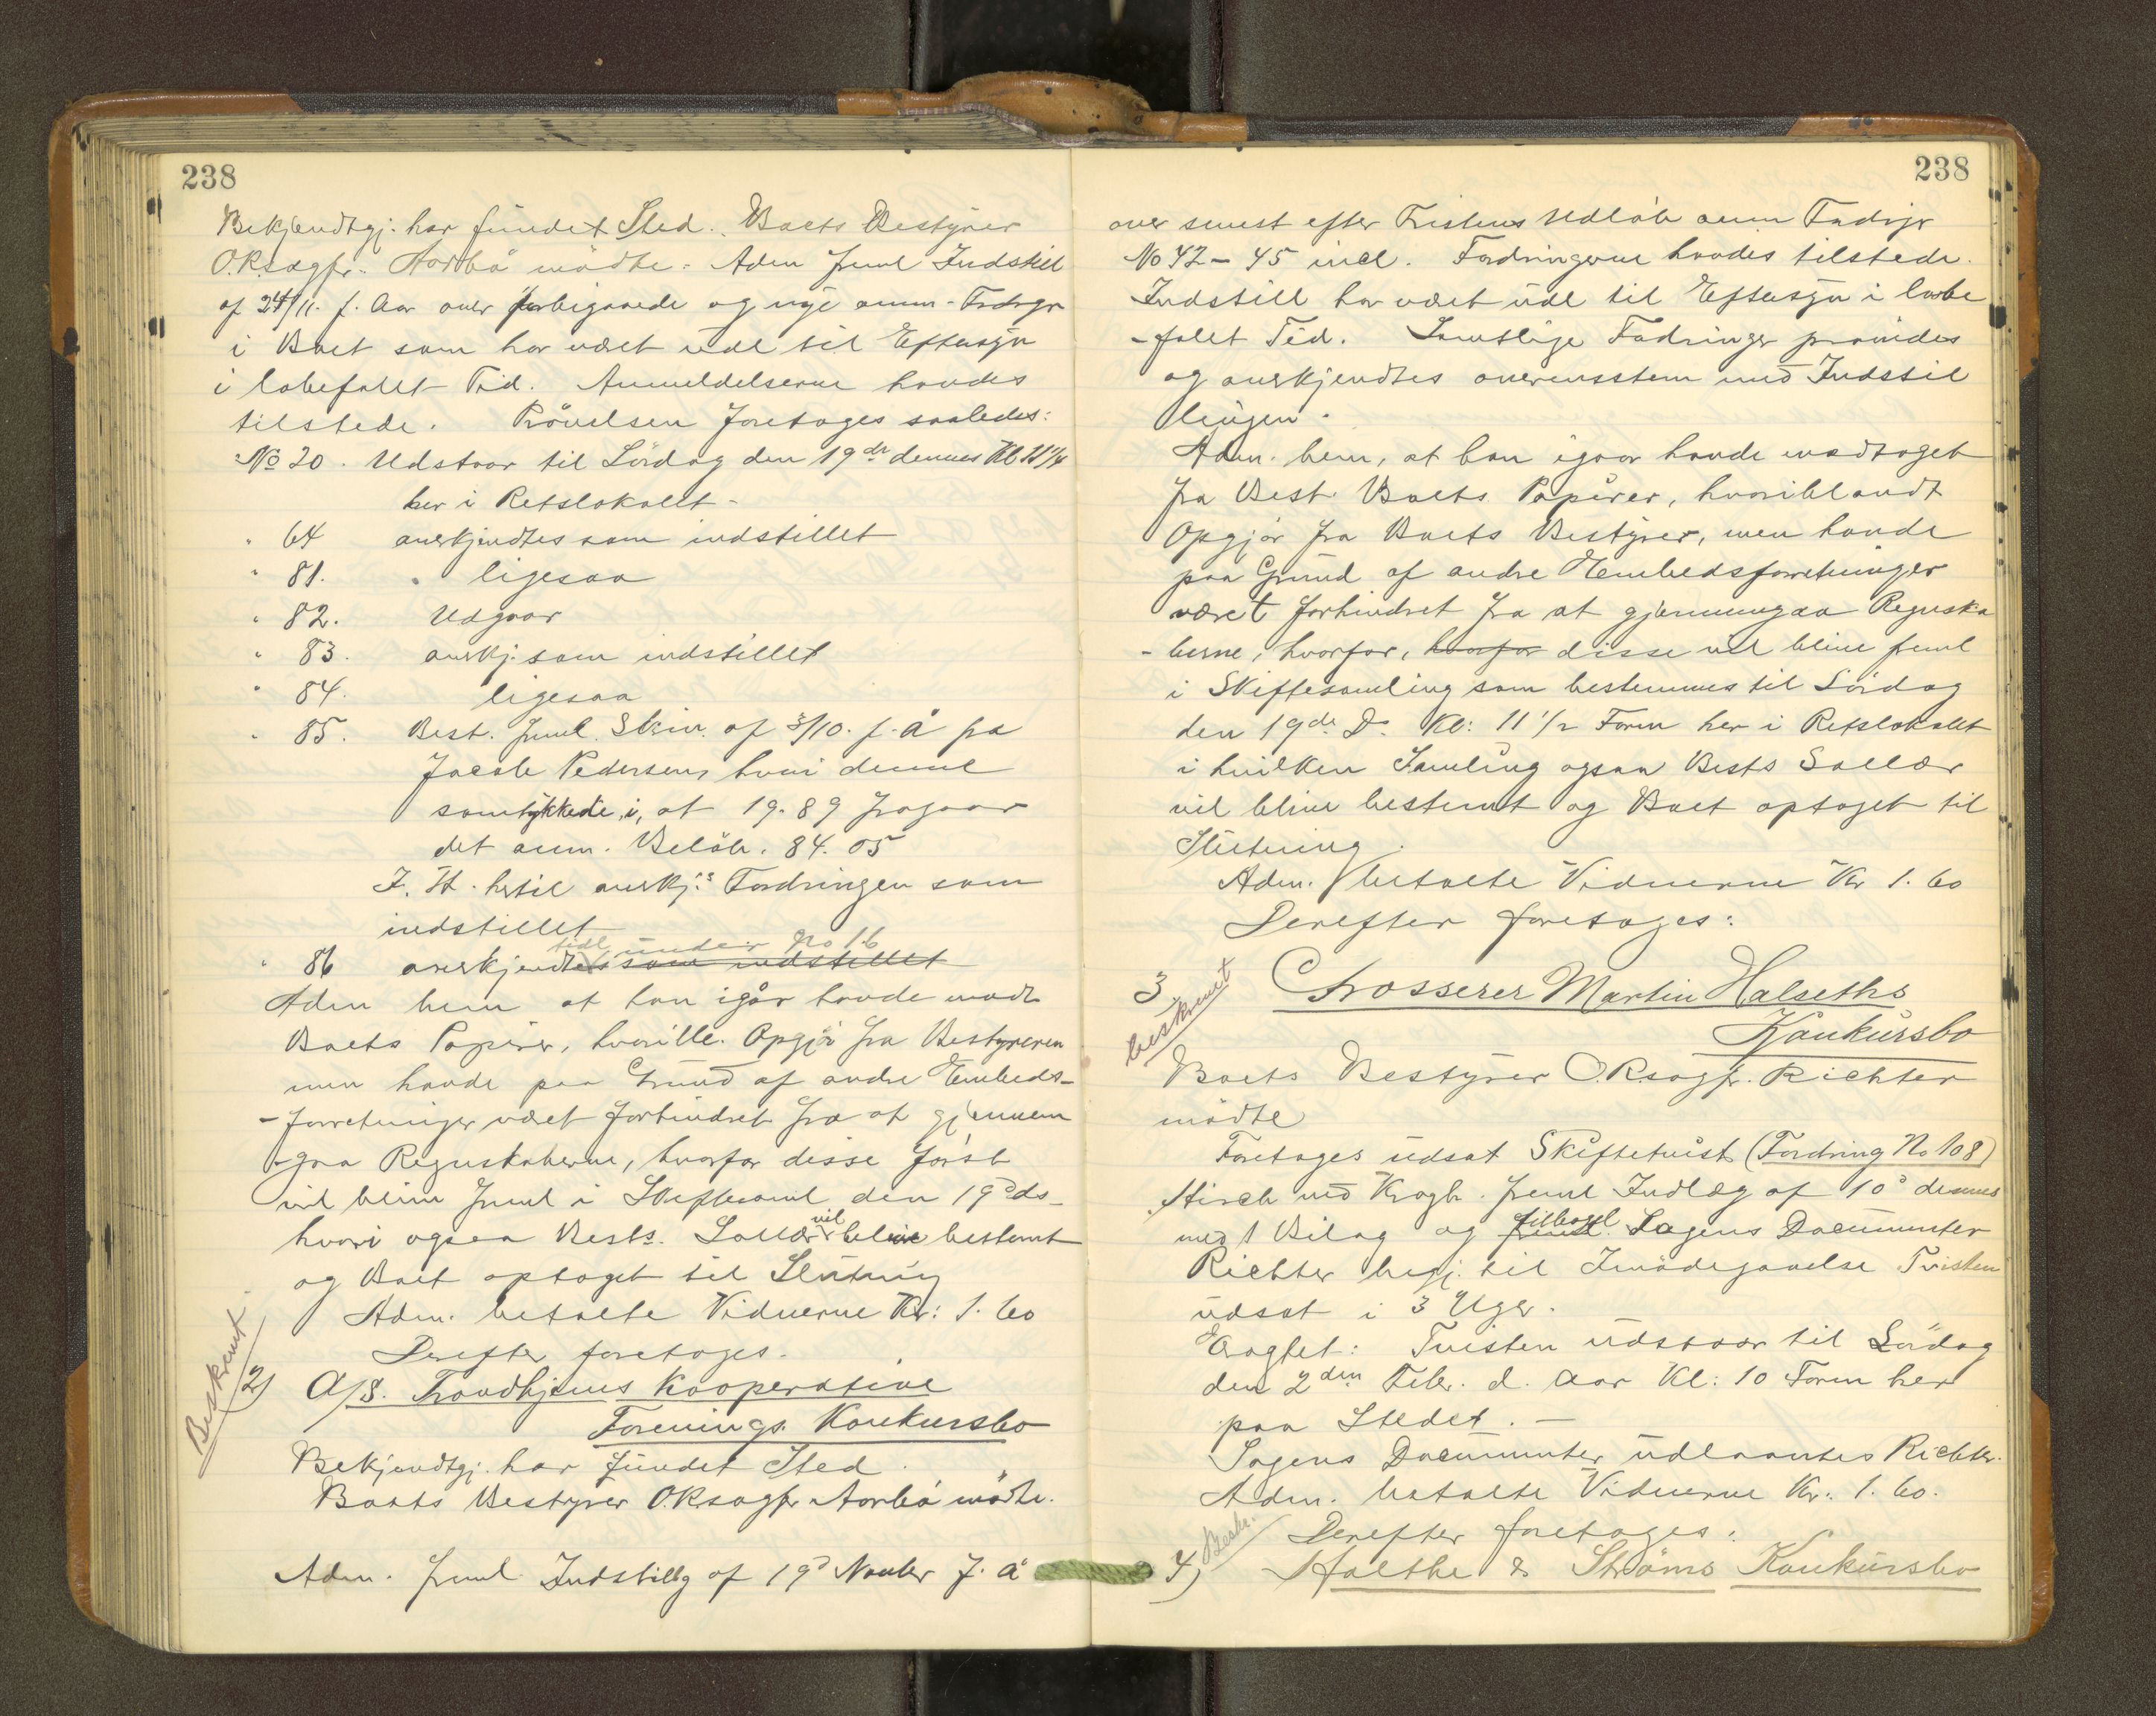 238
Bekjendtgj. har fundet Sted. Boets Bestyrer
O.R.sagfr. Aarbö mödte. Adm freml Indstill
af 24/11. f. Aar over forbigaaede og nye anm. Fordrgr
i Boet som har været udl til Eftersyn
i lobefalet Tid. Anmeldelserne havdes
tilstede. Prövelsen foretoges saaledes:
No 20. Udstaar til Lördag den 19de dennes Kl. 11 1/4
her i Retslokalet -
" 64 anerkjendtes som indstillet
" 81. " ligesaa
" 82. Udgaar
" 83. anerkj. som indstillet
" 84. ligesaa
" 85. Best. freml. Skriv. af 3/10. f. Å fra
Jacob Pedersen, hvori denne
samtykkede i, at 19.89 fragaar
det anm. Belöb. 84.05
I. H. hertil anerkj.s Fordringen som
indstillet
tidl under No 16
" 86 anerkjendtes som indstillet
Adm bem at han igår havde modt
Boets Papirer, hvoribl. Opgjör fra Bestyreren
men havde paa Grund af andre Embeds-
-forretninger været forhindret fra at gjennem
-gaa Regnskaberne, hvorfor disse först
vil blive freml i Skiftesaml den 19d ds
hvori ogsaa Bests. Sallær vil blive bestemt
og Boet optaget til Slutning
Adm. betalte Vidnerne Kr: 1.60
Derefter foretoges.
Beskrevet.
2) A/S. Trondhjems Kooperative
Forenings Konkursbo
Bekjendtgj. har fundet Sted.
Boets Bestyrer O.R.sagfr Aarbö mödte.
Adm. freml. Indstillg af 19d Novbr f. å
238
over senest efter Fristens Udlöb anm Fordrgr
No 42-45 incl. Fordringerne havdes tilstede.
Indstill har været udl til Eftersyn i lovbe
-falet Tid. Samtlige Fordringer prövedes
og anerkjendtes overensstem med Indstil
lingen.
Adm. bem, at han igaar havde modtaget
fra Best Boets Papirer, hvoriblandt
Opgjör fra Boets Bestyrer, men havde
paa Grund af andre Embedsforretninger
været forhindret fra at gjennemgaa Regnska
-berne, hvorfor, hvorfor disse vil blive freml
i Skiftesamling som bestemmes til Lördag
den 19de Ds. Kl: 11 1/2 Form her i Retslokalet
i hvilken Samling ogsaa Bests Sallær
vil blive bestemt og Boet optaget til
Slutning.
Adm. betalte Vidnerne Kr 1.60
Derefter foretoges:
beskrevet
3 Grosserer Martin Halseths
Konkursbo
Boets Bestyrer O.R.sagfr. Richter
mödte
Foretoges udsat Skiftetvist (Fordring No 108)
Hirsch ved Krogh. freml Indlæg af 10d dennes
med 1 Bilag og freml. tilbagel Sagens Documenter
Richter begj. til Imödegaaelse Tvisten
udsat i 3 Uger.
Eragtet: Tvisten udstaar til Lördag
den 2den Febr. d. Aar Kl: 10 Form her
paa Stedet. -
Sagens Documenter udlaantes Richter.
Adm. betalte Vidnerne Kr: 1.60.
Derefter foretoges:
Beskr.
4) Holthe & Ströms Konkursbo